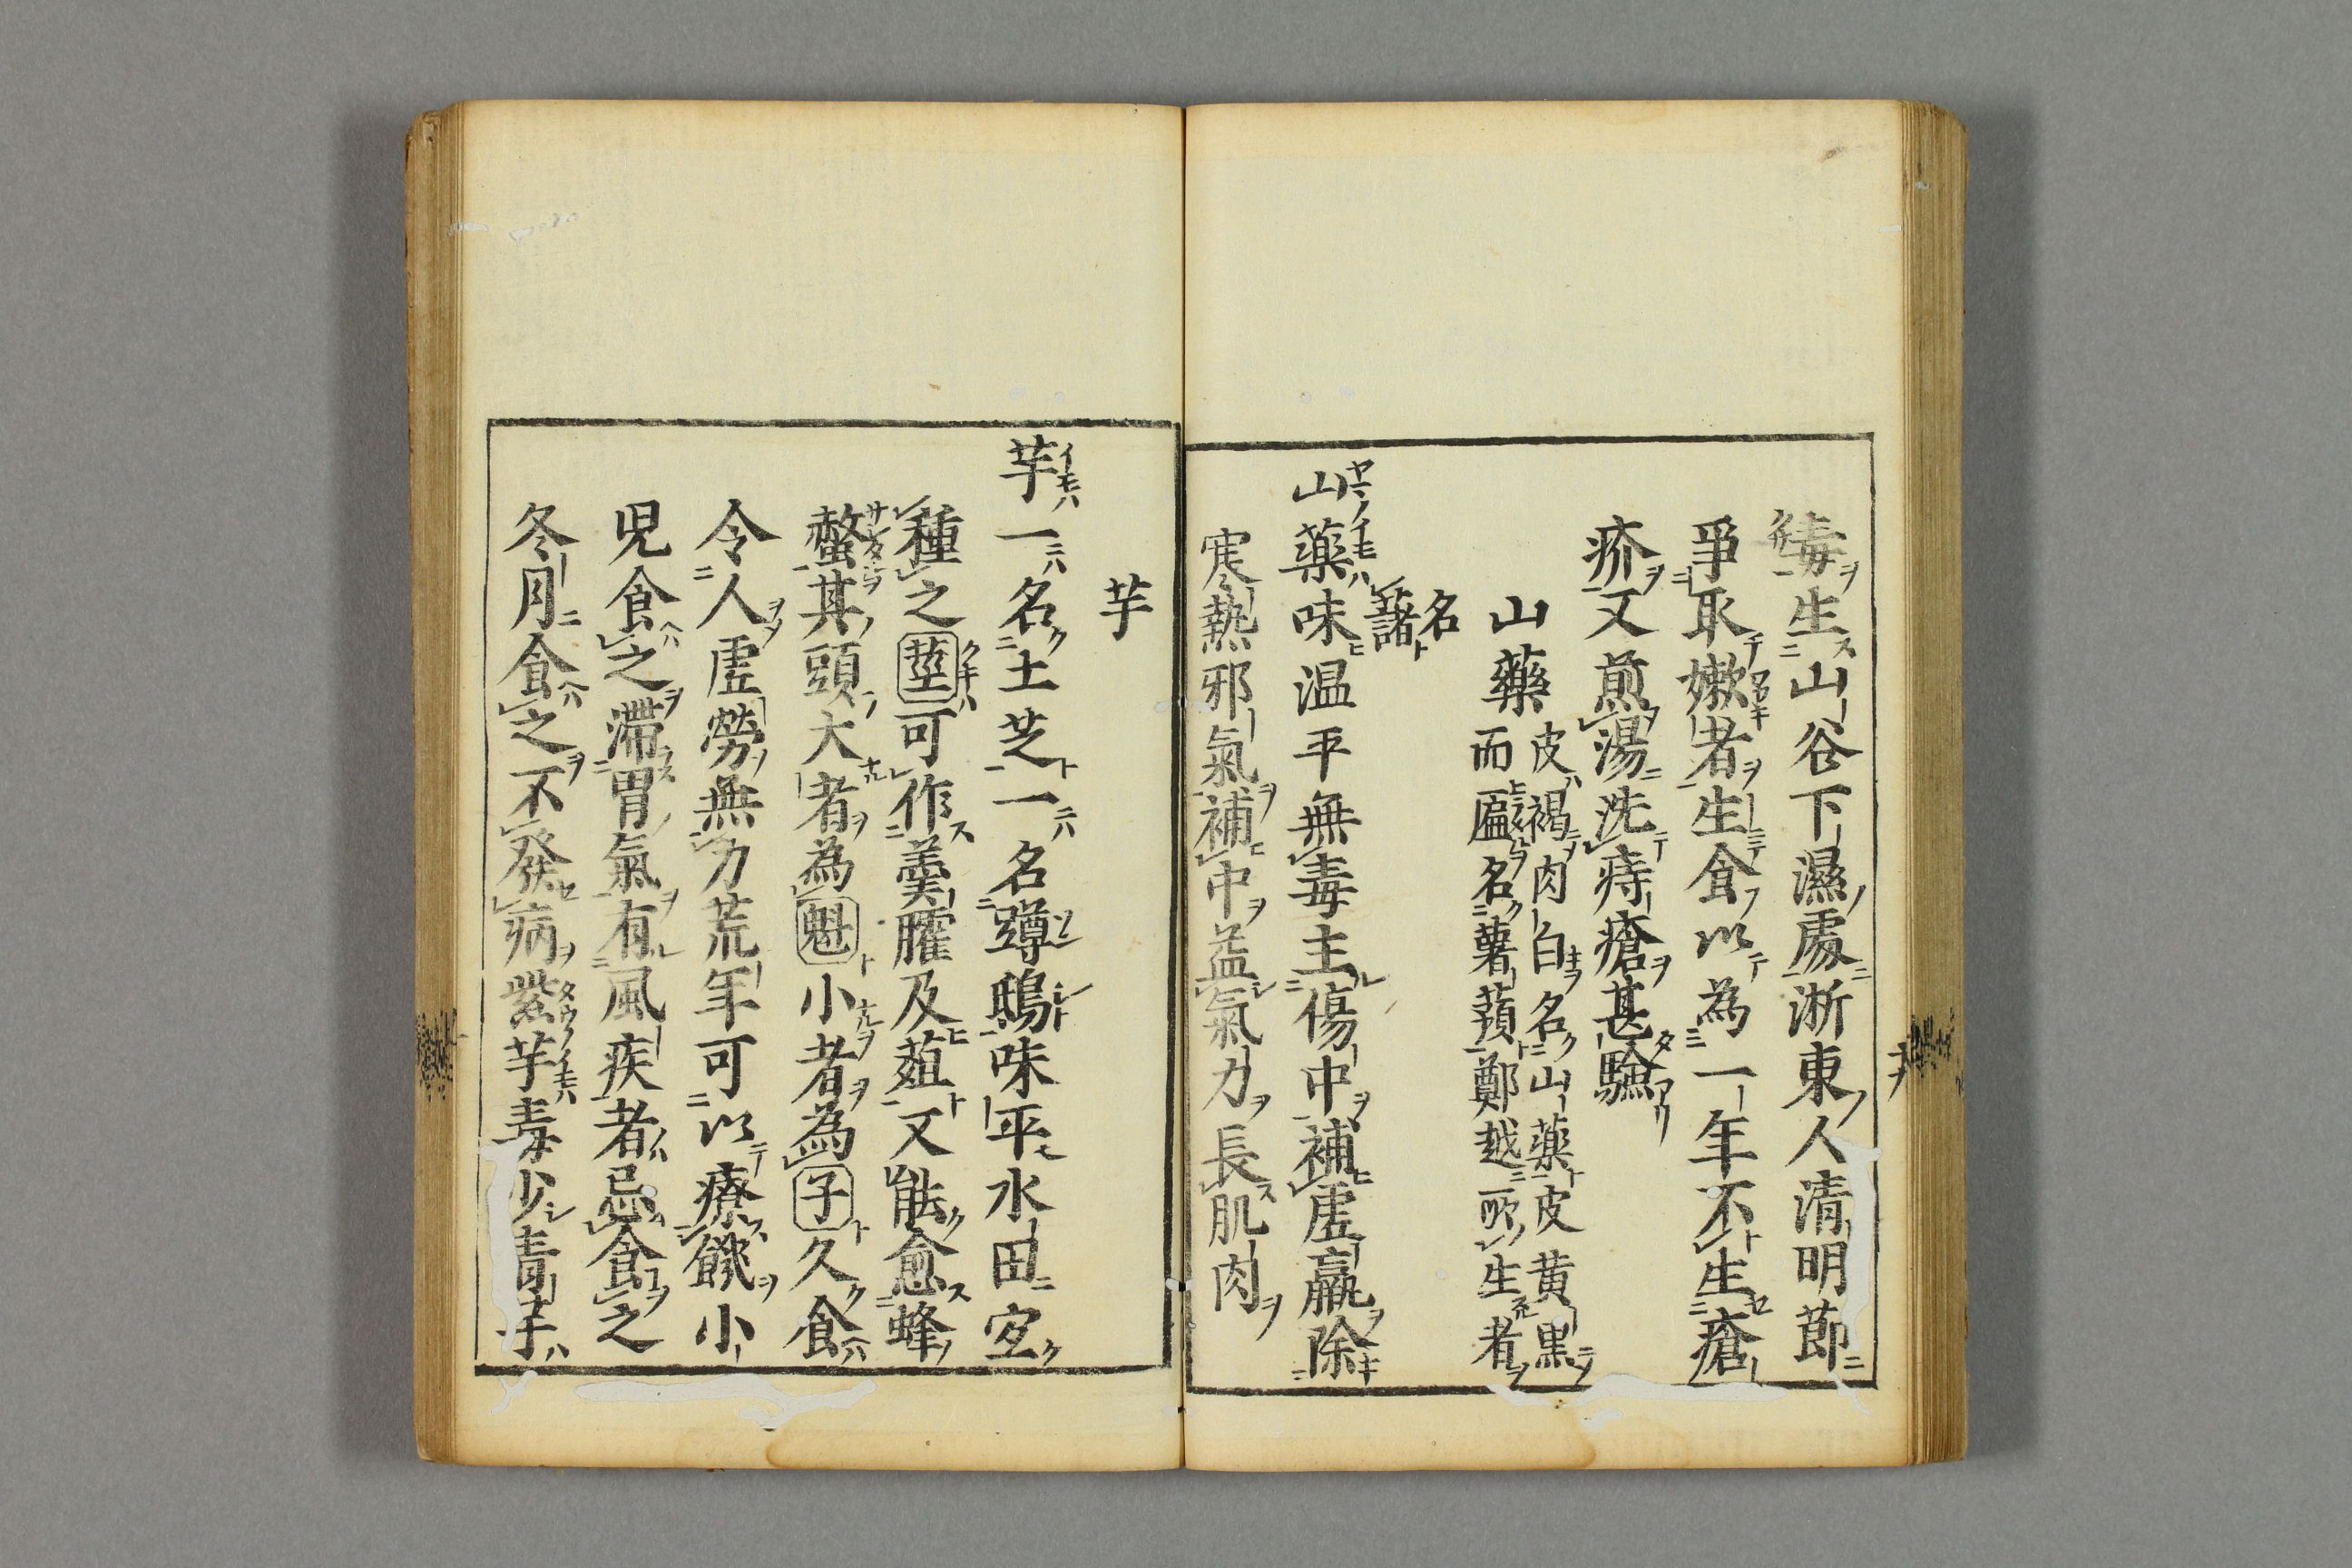 毒生山谷下濕處浙東人清明節
爭取嫰者生食以為一年不生瘡
疥又煎湯洗痔瘡甚驗
山藥皮褐肉白名山藥皮黄黒
而匾名薯蕷鄭越所生者
名藷
山藥味温平無毒主傷中補虚羸除
寒熱邪氣補中益氣力長肌肉
芋
芋一名土芝一名蹲鴟味平水田宜
種之莖可作羹臛及葅又能愈蜂
螫其頭大者為魁小者為子久食
令人虚勞無力荒年可以療饑小
児食之滯胃氣有風疾者忌食之
冬月食之不發病紫芋毒少青芋